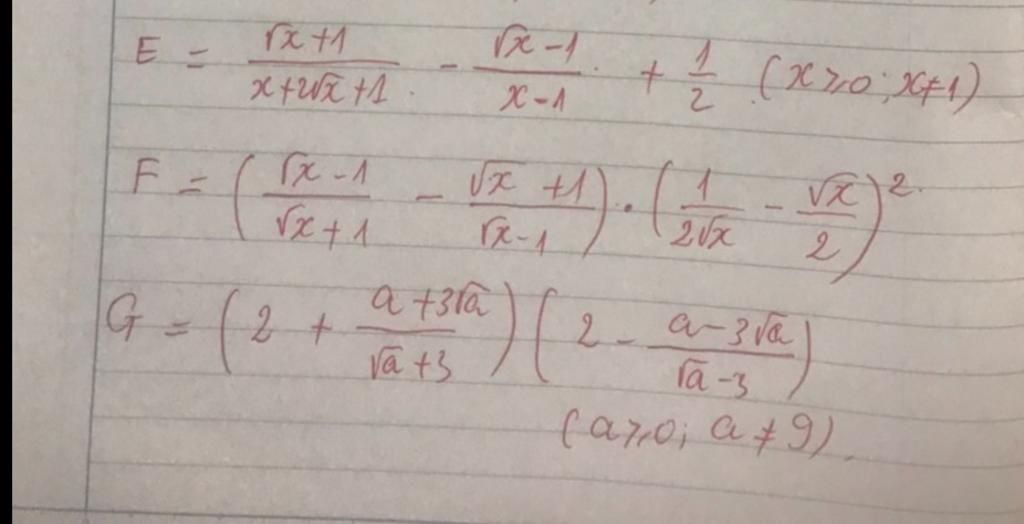 E = \frac{\sqrt{x}+1}{x+2\sqrt{x}+1} - \frac{\sqrt{x}-1}{x-1} + \frac{1}{2} (x \geq 0; x \neq 1)
F = \left( \frac{\sqrt{x}-1}{\sqrt{x}+1} - \frac{\sqrt{x}+1}{\sqrt{x}-1} \right) \cdot \left( \frac{1}{2\sqrt{x}} - \frac{\sqrt{x}}{2} \right)^2
G = \left( 2 + \frac{a+3\sqrt{a}}{\sqrt{a}+3} \right) \left( 2 - \frac{a-3\sqrt{a}}{\sqrt{a}-3} \right)
(a \geq 0; a \neq 9)